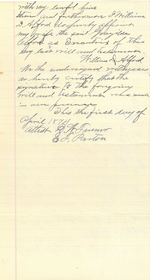 with my lawful
then and furthermore I William
J Alford do hereby appoint
my wife
Alford as Executrix of this
my last will and testament
William J Alford
We the undersigned witnesses
do hereby certify that the
signature to the foregoing
will and testament was made
in our presence
This the first day of
April 1874
Attest